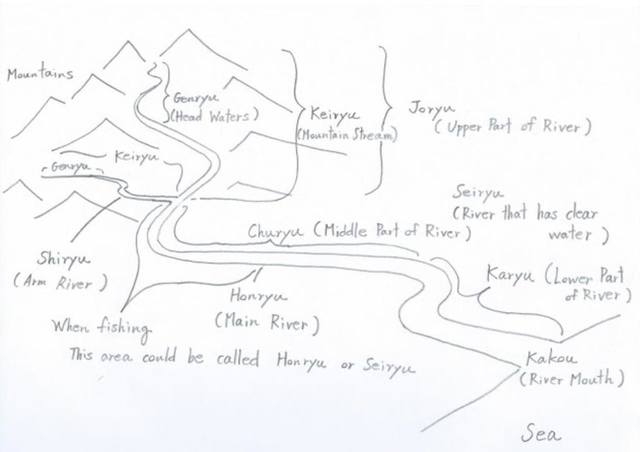 Mountains
Genryu
(Head Waters)
Keiryu
(Mountain Stream)
Joryu
(Upper Part of River)
Genryu
Keiryu
Seiryu
(River that has clear
water)
Shiryu
(Arm River)
Churyu (Middle Part of River)
Karyu (Lower Part
of River)
Honryu
(Main River)
When fishing
This area could be called Honryu or Seiryu
Kakou
(River Mouth)
Sea